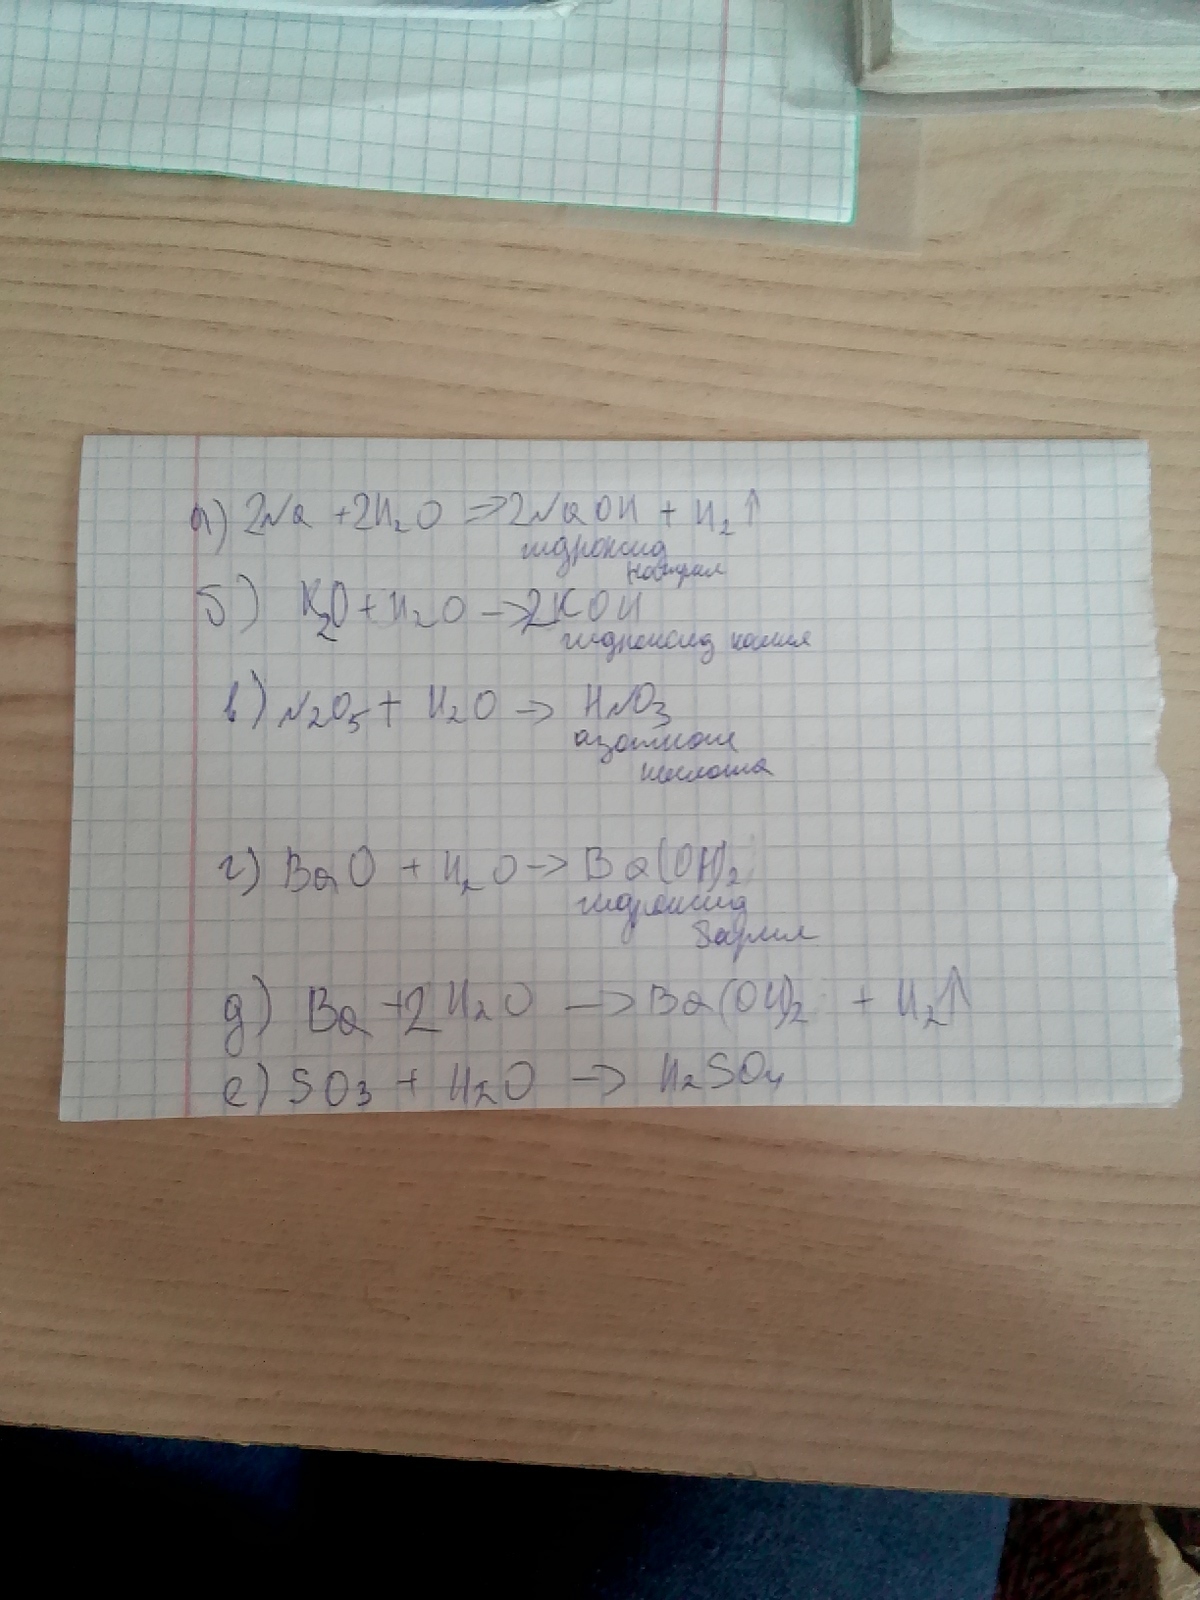 а) 2Na + 2H₂O → 2NaOH + H₂↑
гидроксид
натрия
б) K₂O + H₂O → 2KOH
гидроксид калия
в) N₂O₅ + H₂O → HNO₃
азотная
кислота
г) BaO + H₂O → Ba(OH)₂
гидроксид
бария
д) Ba + 2H₂O → Ba(OH)₂ + H₂↑
е) SO₃ + H₂O → H₂SO₄